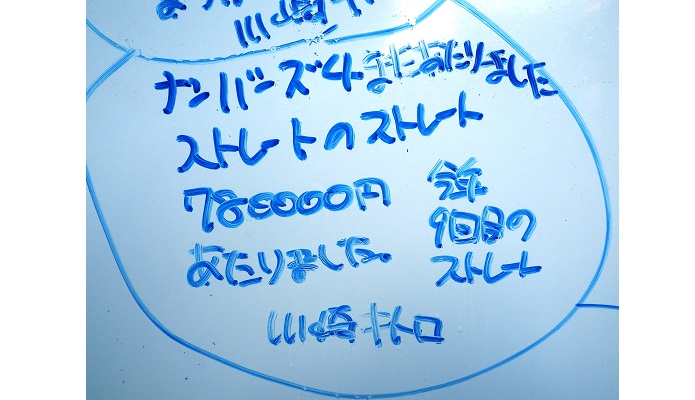 川崎
ナンバーズ4またあたりました
ストレートのストレート
780000円
あたりました。
今年
9回目の
ストレート
川崎キトロ